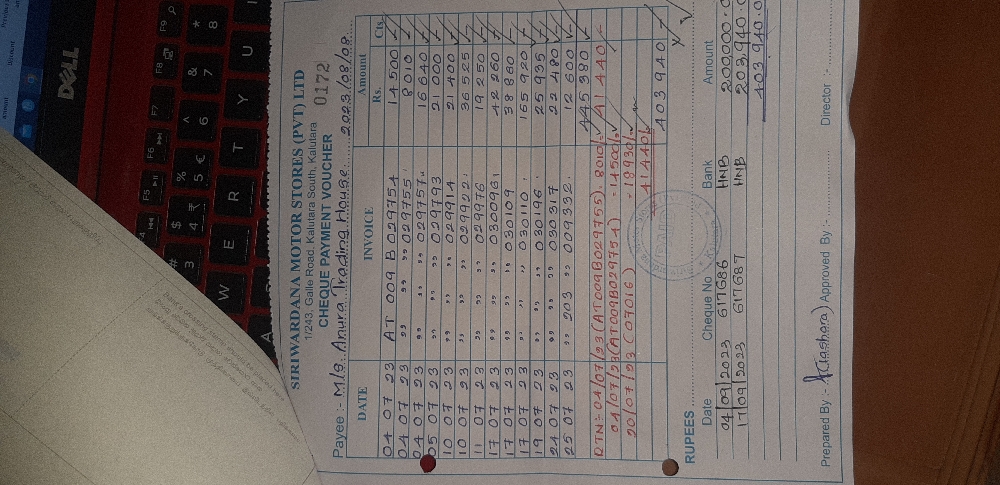 SIRIWARDANA MOTOR STORES (PVT) LTD
1/243, Galle Road, Kalutara South, Kalutara
CHEQUE PAYMENT VOUCHER 0172
Payee :- M/s. Anura Trading House. 2023/08/08
DATE INVOICE Amount
Rs. Cts.
04 07 23 AT 009 B 029754 14 500
04 07 23 ,, ,, ,, 029755 8 010
04 07 23 ,, ,, ,, 029757 16 640
05 07 23 ,, ,, ,, 029793 21 000
10 07 23 ,, ,, ,, 029914 21 400
10 07 23 ,, ,, ,, 029922 36 525
11 07 23 ,, ,, ,, 029976 19 250
17 07 23 ,, ,, ,, 030096 42 260
17 07 23 ,, ,, ,, 030109 38 860
17 07 23 ,, ,, ,, 030110 165 920
19 07 23 ,, ,, ,, 030196 25 935
24 07 23 ,, ,, ,, 030317 22 480
25 07 23 ,, 203 ,, 009332 12 600
445 380
RTN = 04/07/23 (AT009B029755) . 8010/. 41 440
04/07/23 (AT009B029754) - 14500/.
20/07/23 (07016) - 18930/.
41440/.
403 940
RUPEES
Date Cheque No Bank Amount
04/09/2023 617686 HNB 200,000.0
17/09/2023 617687 HNB 203,940.0
403,940.0
Prepared By :- Approved By :- Director :-
DELL
F5 F6 F7 F8 F9
# 3 $ 4 ₹ % 5 € ^ 6 & 7 * 8
W E R T Y U
A